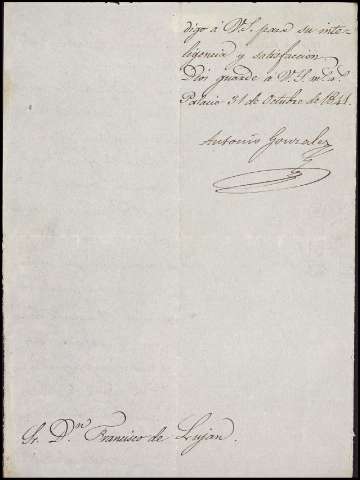 digo á V.S. para su inte-
ligencia y satisfaccion.
Dios guarde á V.S. m.s a.s
Palacio 31 de Octubre de 1841.
Antonio Gonzalez
Sr. D.n Francisco de Lujan.